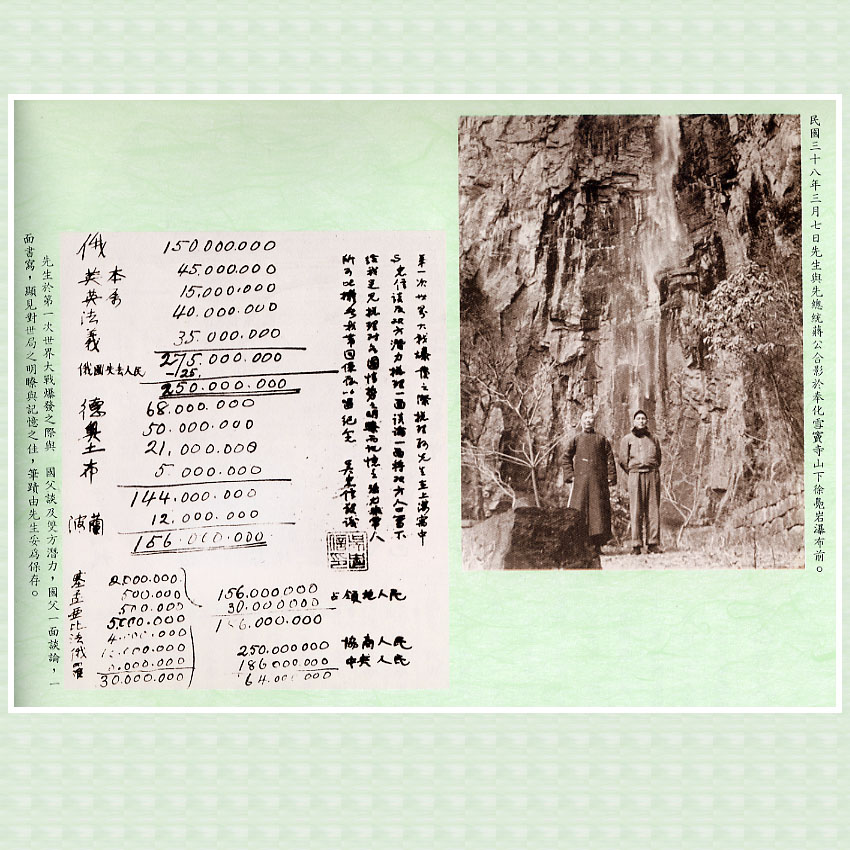 民國三十八年三月七日先生與先總統蔣公合影於奉化雪竇寺山下徐鳧岩瀑布前。
第一次世界大戰爆發之際總理孫先生在上海寓中
与忠信談及双方潛力總理一面談論一面將双方人口書示
給我足見總理對各國情勢之明瞭而記憶之強力非常人
所可比擬
紀念 吳忠信敬識
俄 150.000.000
英本 45.000.000
英屬 15.000.000
法 40.000.000
義 35.000.000
275.000.000
俄國失去人民 -125.
250.000.000
德 68.000.000
奧 50.000.000
土 21.000.000
布 5.000.000
144.000.000
波蘭 12.000.000
156.000.000
塞 2.500.000
孟 500.000
亞 500.000
比 5.000.000
法
俄
羅
30.000.000
156.000.000
30.000.000 占領地人民
186.000.000
250.000.000 協商人民
186.000.000 中央人民
64.000.000
先生於第一次世界大戰爆發之際與 國父談及雙方潛力，國父一面談論，一
面書寫，顯見對世局之明瞭與記憶之佳，筆蹟由先生妥為保存。